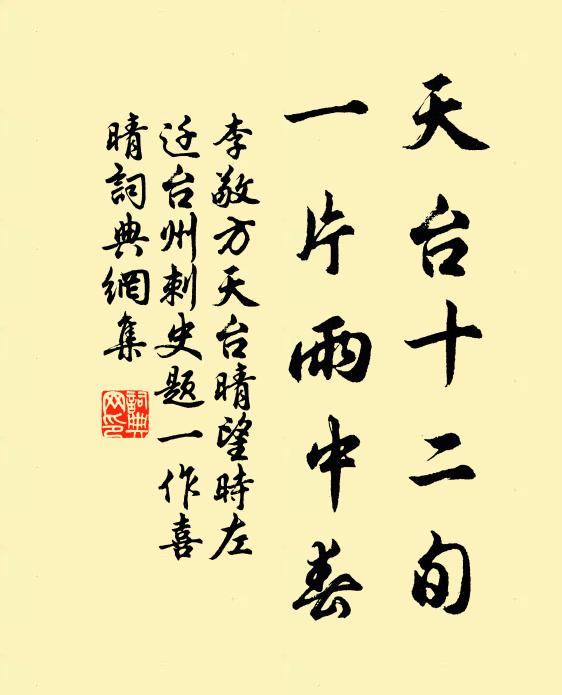 天台十二旬
一片雨中春
李敬方天台晴望時左
迁台州刺史题一作喜
晴詞典網集
詞典
网印